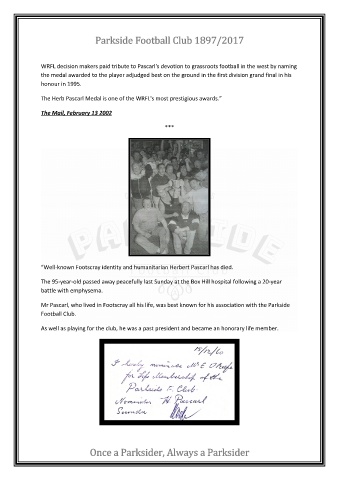 Parkside Football Club 1897/2017
WRFL decision makers paid tribute to Pascarl's devotion to grassroots football in the west by naming
the medal awarded to the player adjudged best on the ground in the first division grand final in his
honour in 1995.
The Herb Pascarl Medal is one of the WRFL's most prestigious awards."
The Mail, February 13 2002
***
PARKSIDE
"Well-known Footscray identity and humanitarian Herbert Pascarl has died.
The 95-year-old passed away peacefully last Sunday at the Box Hill hospital following a 20-year
battle with emphysema.
Mr Pascarl, who lived in Footscray all his life, was best known for his association with the Parkside
Football Club.
As well as playing for the club, he was a past president and became an honorary life member.
/12/60
I hereby nominate Mr E O'Keefe
for Life Membership of the
Parkside F. Club
Nominator H Pascarl
Seconder
Once a Parksider, Always a Parksider